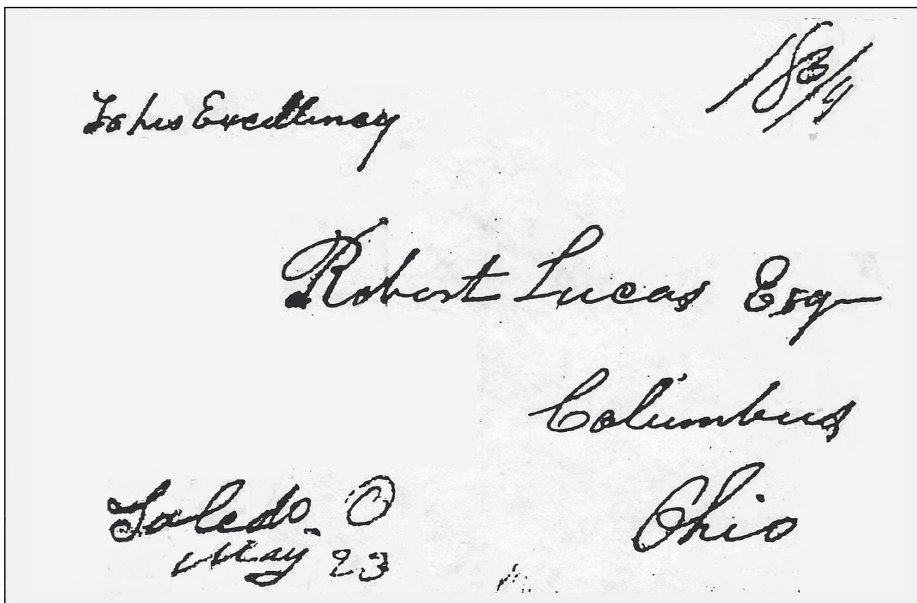 18 3/4
To his Excellency
Robert Lucas Esq
Columbus
Ohio
Toledo. O
May 23